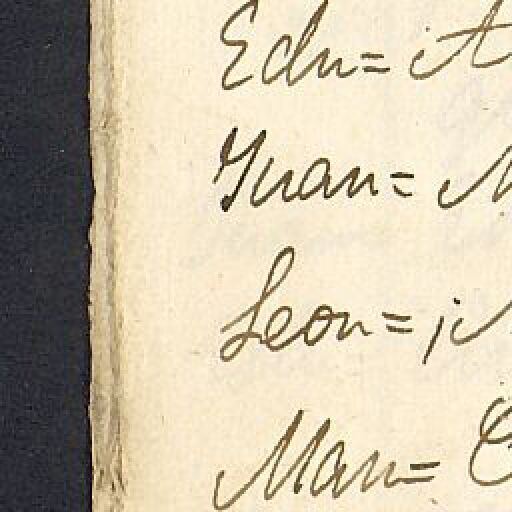 Edu= A
Yuan= M
Leon= ;
Man= C